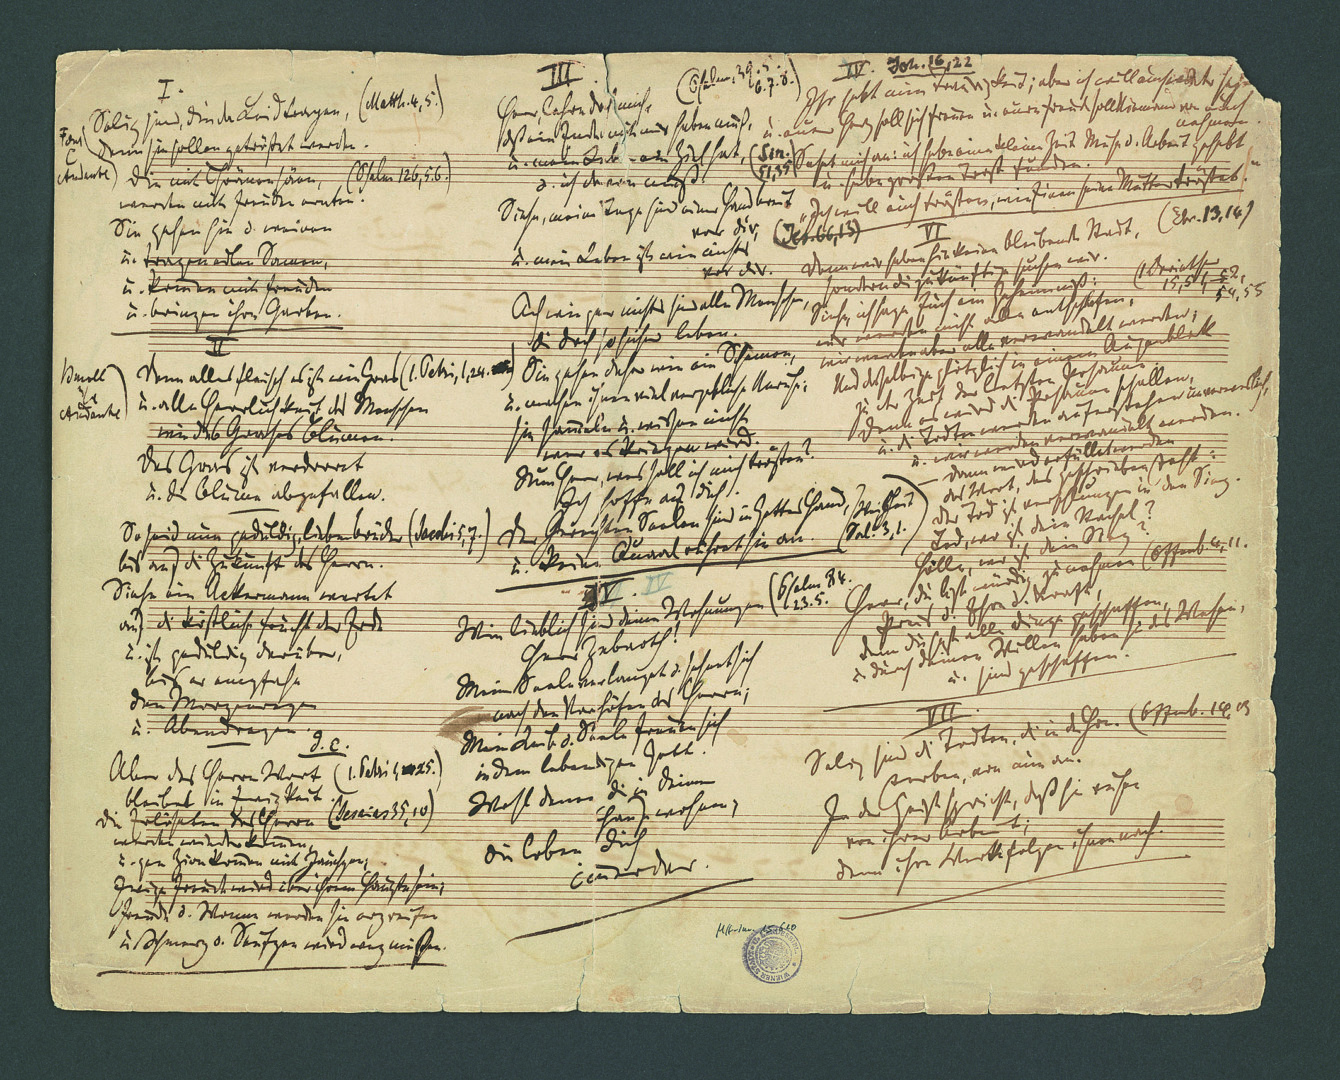 I.
Selig sind, die da Leid tragen, (Matth. 4, 5.)
denn sie sollen getröstet werden.
F dur
C
Andante
Die mit Thränen säen, (Psalm 126, 5.6.)
werden mit Freuden ernten.
Sie gehen hin u. weinen
u. tragen edlen Samen,
u. kommen mit Freuden
u. bringen ihre Garben.
II
B moll
3/4
Andante
Denn alles Fleisch es ist wie Gras (1. Petri, 1, 24.
u. alle Herrlichkeit des Menschen
wie des Grases Blumen.
Das Gras ist verdorret
u. die Blume abgefallen.
So seid nun geduldig, lieben Brüder (Jacobi 5, 7.)
bis auf die Zukunft des Herrn.
Siehe ein Ackermann wartet
auf die köstliche Frucht der Erde
u. ist geduldig darüber,
bis er empfahe
den Morgenregen
u. Abendregen.
d. c.
Aber des Herrn Wort (1. Petri 1, 25.)
bleibet in Ewigkeit.
Die Erlöseten des Herrn (Jesaias 35, 10)
werden wieder kommen,
u. gen Zion kommen mit Jauchzen;
Ewige Freude wird über ihrem Haupte sein;
Freude u. Wonne werden sie ergreifen
u. Schmerz u. Seufzen wird weg müssen.
III.
(Psalm, 39, 5.
6. 7. 8.)
Herr, lehre doch mich,
daß ein Ende mit mir haben muß,
u. mein Leben ein Ziel hat,
u. ich davon muß.
Siehe, meine Tage sind einer Hand breit
vor dir,
u. mein Leben ist wie nichts
vor dir.
Ach wie gar nichts sind alle Menschen,
die doch so sicher leben.
Sie gehen daher wie ein Schemen,
u. machen ihnen viel vergebliche Unruhe;
sie sammeln u. wissen nicht
wer es kriegen wird.
Nun Herr, weß soll ich mich trösten?
Ich hoffe auf dich.
Der Gerechten Seelen sind in Gottes Hand, (Weisheit
u. keine Quaal rühret sie an. Sal. 3, 1.)
IV. IV
Wie lieblich sind deine Wohnungen (Psalm 84.
2.3.5.
Herr Zebaoth!
Meine Seele verlanget u. sehnet sich
nach den Vorhöfen des Herrn;
Mein Leib u. Seele freuen sich
in dem lebendigen Gott.
Wohl denen die in deinem
Hause wohnen,
die loben dich
immerdar.
IV. Joh. 16, 22
Ihr habt nun Traurigkeit; aber ich will euch wieder sehn
u. euer Herz soll sich freuen u. eure Freude soll Niemand von euch
nehmen.
(Sir.
51, 35) Sehet mich an: ich habe eine kleine Zeit Mühe u. Arbeit gehabt
u. habe großen Trost funden.
"Ich will euch trösten, wie Einen seine Mutter tröstet."
(Jes. 66, 13)
VI
Denn wir haben hie keine bleibende Stadt, (Ebr. 13, 14)
sondern die zukünftige suchen wir.
Siehe, ich sage Euch ein Geheimniß: (1 Corinther
15, 51, 52,
54, 55
wir werden nicht alle entschlafen,
wir werden aber alle verwandelt werden;
Und dasselbige plötzlich in einem Augenblick
zu der Zeit der letzten Posaune.
Denn es wird die Posaune schallen,
u. die Todten werden auferstehen unverweslich,
u. wir werden verwandelt werden.
Dann wird erfüllet werden
das Wort, das geschrieben steht:
Der Tod ist verschlungen in den Sieg.
Tod, wo ist dein Stachel?
Hölle, wo ist dein Sieg?
Herr, du bist würdig zu nehmen (Offenb. 4, 11.
Preis u. Ehre u. Kraft,
denn du hast alle Dinge geschaffen,
u. durch deinen Willen haben sie das Wesen,
u. sind geschaffen.
VII.
(Offenb. 14, 13
Selig sind die Todten, die in dem Herrn
sterben, von nun an.
Ja der Geist spricht, daß sie ruhen
von ihrer Arbeit;
denn ihre Werke folgen ihnen nach.